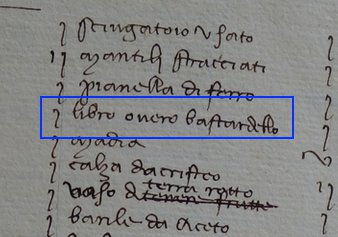 j sciugatoio usato
ij mantili stracciati
j pianella di ferro
j libro overo bastardello
j madia
j calza da cristeo
j vaso di terra rotto
j barile da aceto